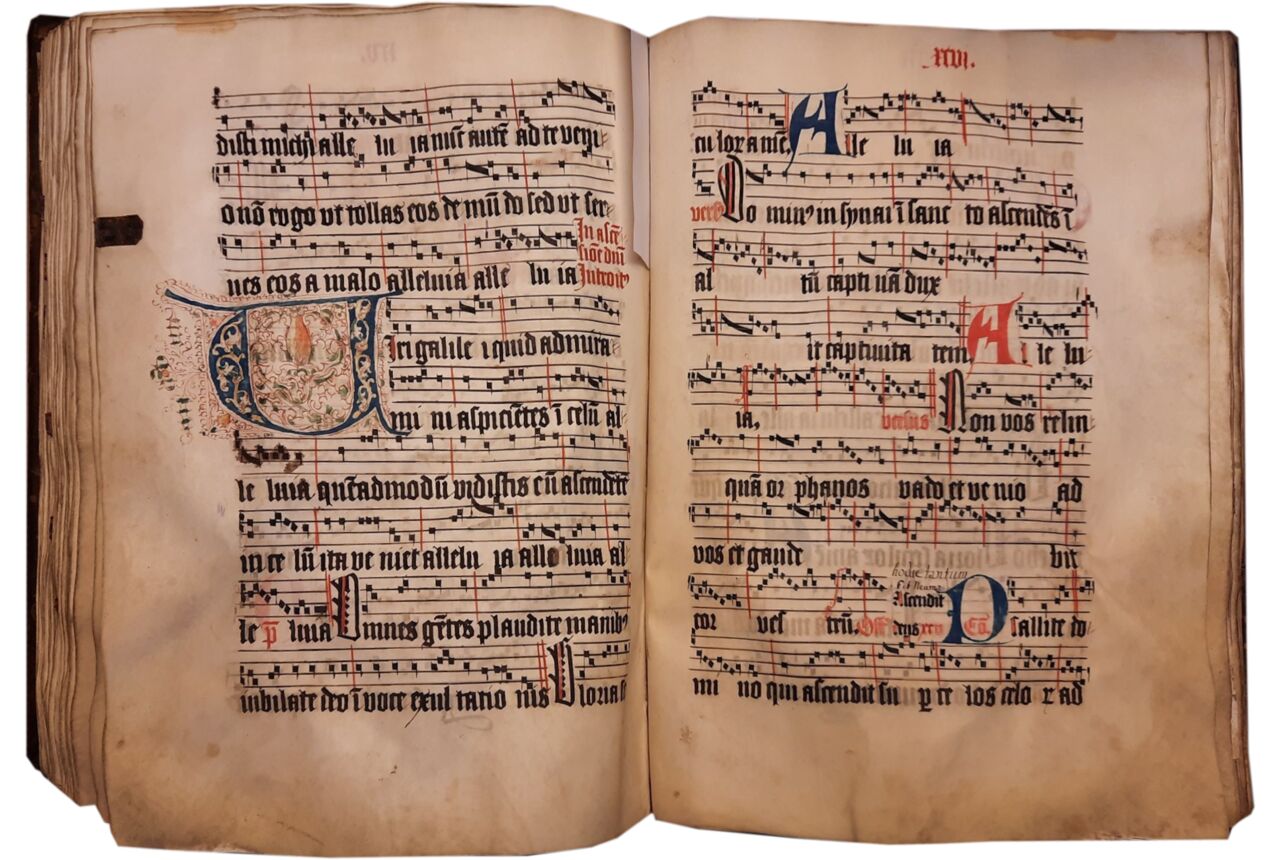 disti michi alle lu ia nūc autē ad te veni
o nō rogo vt tollas eos de mūdo sed vt ser
In ascē
siōe dnī
nes eos a malo alleluia alle lu ia Introitꝰ
Viri galile i quid admira
mi ni aspiciētes ī celū al
le luia quēadmodū vidistis eū ascendētē
in ce lū ita ve niet allelu ya alle luia al
le p̄ luia Omnes gētes plaudite manibꝰ
iubilate deo ī voce exul tatio nis Gloria
xxvi.
cu lorz amē. Alle lu ia
versꝰ Do minꝰ in synai ī sanc to ascendēs ī
al tū capti uā dux
it captiuita tem A l le lu
ia, versus Non vos relin
quā or phanos vado et ve nio ad
vos et gaude bit
hodie tantum
Ascendit
cor ves trū. Off deus Cō Psallite do
mi no qui ascendit su per ce los celo rz ad